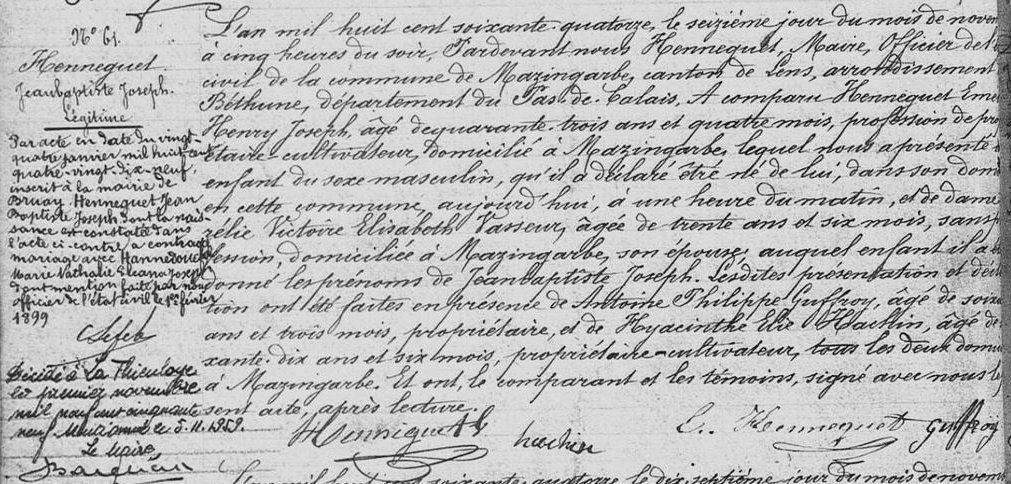 N° 61.
Hennequet
Jeanbaptiste Joseph.
Légitime
Par acte en date du vingt
quatre janvier mil huit cent
quatre-vingt-dix-neuf,
inscrit à la mairie de
Bruay, Hennequet Jean
Baptiste Joseph dont la nais-
sance est constatée dans
l'acte ci-contre, a contracté
mariage avec Hannedouche
Marie Nathalie Eléana Joseph
Dont mention faite par nous
officier de l'état civil le 1er février
1899
Décédé à La Thieuloye
le premier novembre
mil neuf cent cinquante
neuf. le 5.11.1959.
Le Maire,
L'an mil huit cent soixante quatorze, le seizième jour du mois de novem
à cinq heures du soir, Pardevant nous Hennequet, Maire, Officier de l'é
civil de la commune de Mazingarbe, canton de Lens, arrondissement
Béthune, département du Pas-de-Calais, A comparu Hennequet Eme
Henry Joseph, âgé de quarante-trois ans et quatre mois, profession de pro
étaire-cultivateur, domicilié à Mazingarbe, lequel nous a présenté
enfant du sexe masculin, qu'il a déclaré être né de lui, dans son dom
en cette commune, aujourd'hui, à une heure du matin, et de dame
rélie Victoire Elisabeth Vasseur, âgée de trente ans et six mois, sans p
fession, domiciliée à Mazingarbe, son épouse, auquel enfant il a
donné les prénoms de Jeanbaptiste Joseph. Lesdites présentation et décl
tion ont été faites en présence de Antoine Philippe Guffroy, âgé de soix
ans et trois mois, propriétaire, et de Hyacinthe Elie Hachin, âgé de
xante-dix ans et six mois, propriétaire-cultivateur, tous les deux domi
à Mazingarbe. Et ont, le comparant et les témoins, signé avec nous le
sent acte, après lecture.
Hennequet h hachin L. Hennequet Guffroy
L'an mil huit cent soixante quatorze, le dix-septième jour du mois de novem